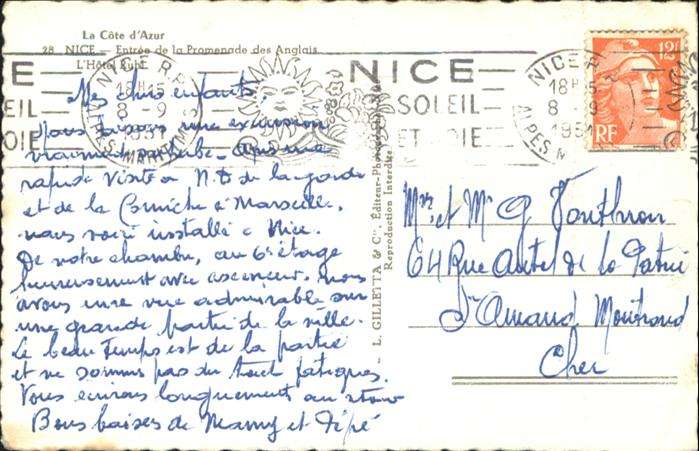 La Côte d'Azur
28. NICE — Entrée de la Promenade des Anglais
L'Hôtel Ruhl
NICE R.P.
18H15
8 - 9
195
ALPES-MARITIMES
NICE
SOLEIL
ET JOIE
NICE R.P.
18H15
8 - 9
1951
ALPES M
12F
RF
E
EIL
OIE
Mes chers enfants
Nous faisons une excursion
vraiment superbe. Après une
rapide visite a N.D de la garde
et de la Corniche a Marseille,
nous voici installé a Nice.
De notre chambre, au 6e étage
heureusement avec ascenseur, nous
avons une vue admirable sur
une grande partie de la ville.
Le beau temps est de la partie
et ne sommes pas du tout fatigués.
Vous écrirons longuement au retour
Bons baisers de Mamy et Pépé
L. GILLETTA & Cie, Éditeur-Photographe
Reproduction Interdite
Mme et Mr G
64 Rue Autel de la Patrie
St Amand Montrond
Cher